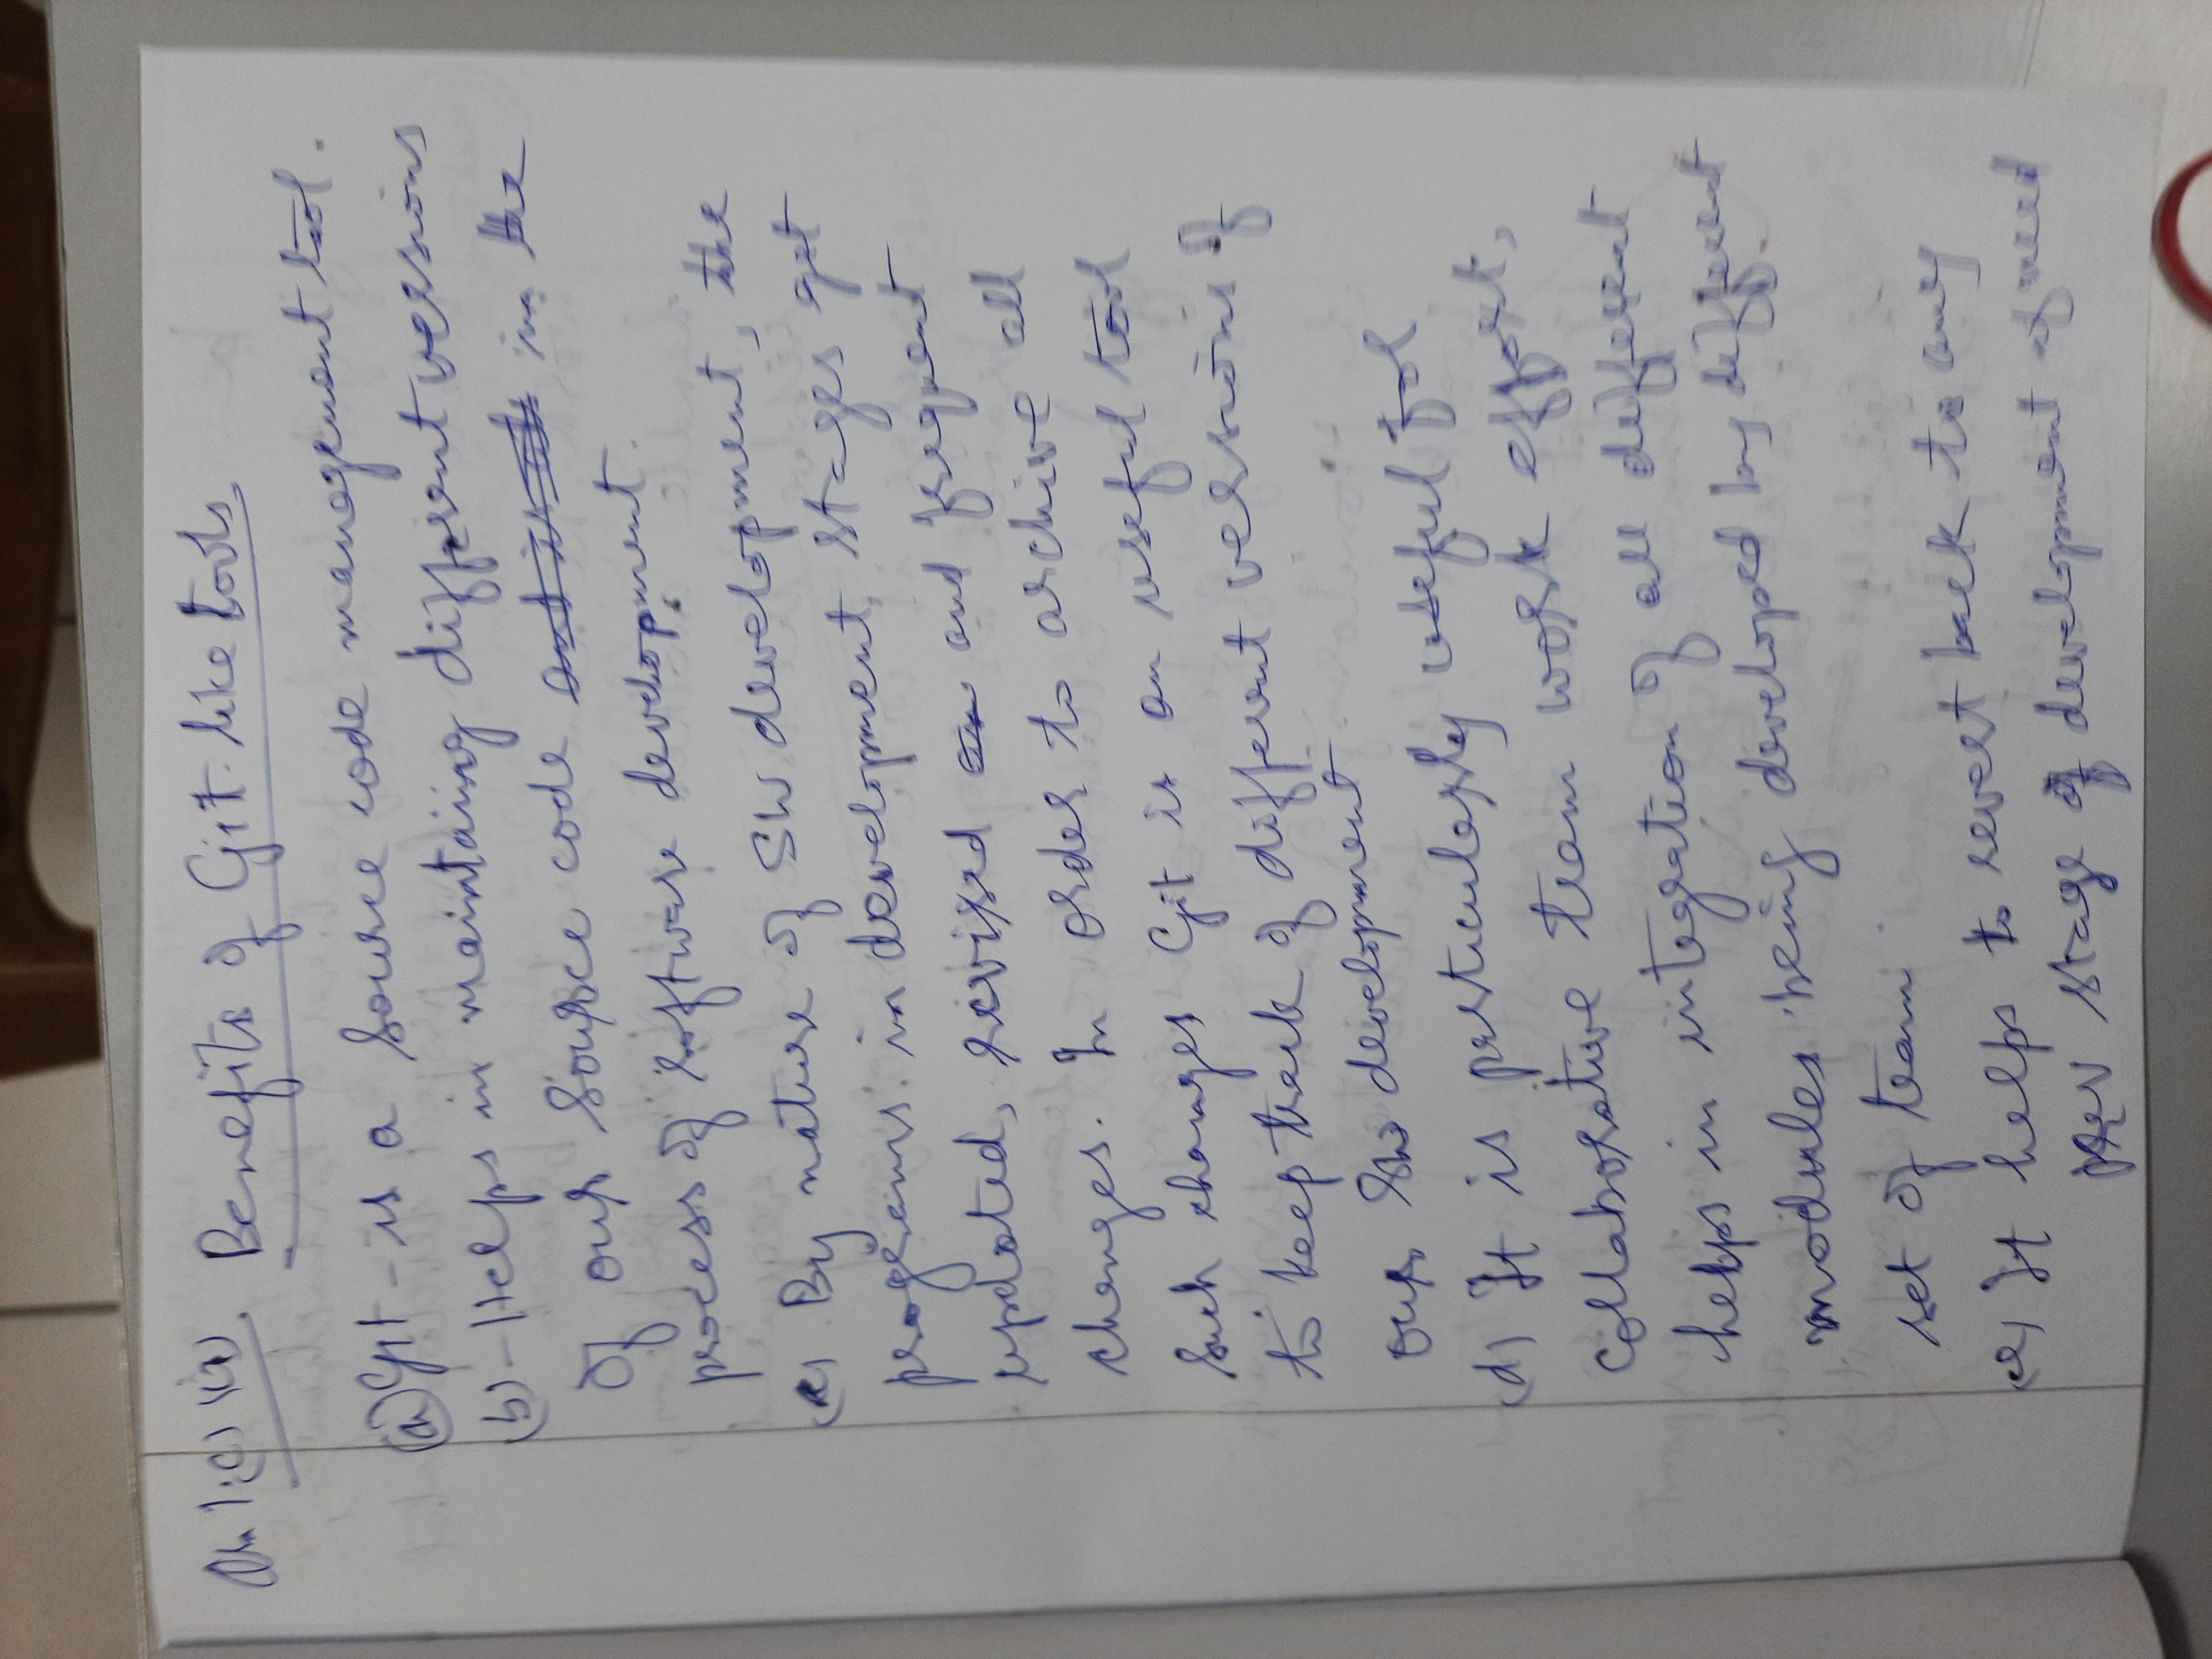 Qn 1.(c) (ii) Benefits of Git like tools
(a) Git - is a source code management tool.
(b) - Helps in maintaiing different versions
of our source code in the
process of software development.
(c) By nature of SW development, the
programs in development stages get
updated, revised and frequent
changes. In order to archive all
such changes Git is an useful tool
to keep track of different versions of
our SW development.
(d) It is particularly useful for
collaborative team work effort,
helps in integration of all different
modules being developed by different
set of team.
(e) It helps to revert back to any
prev stage of development if need